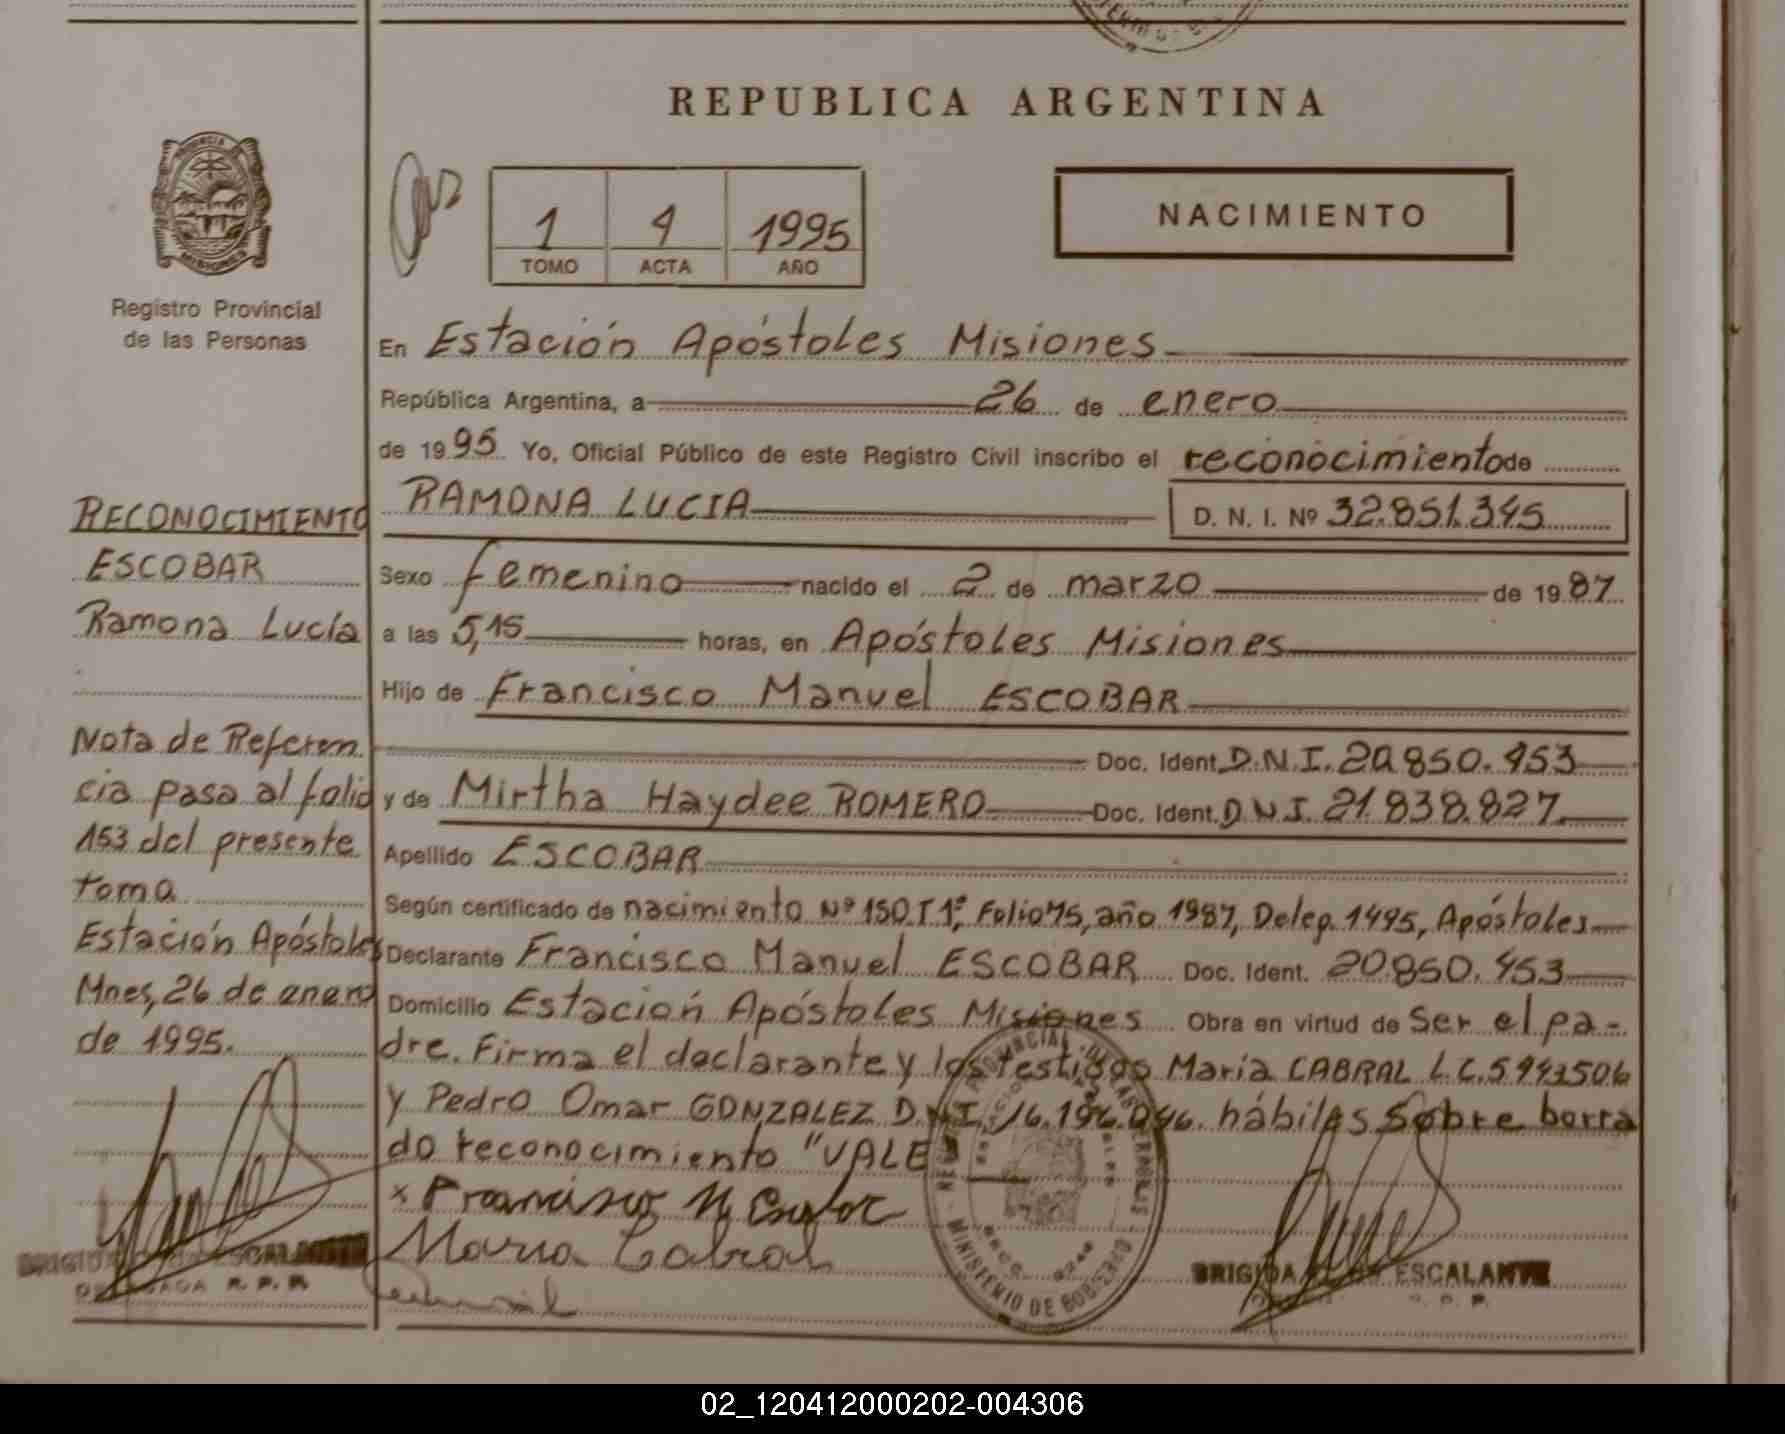 REPUBLICA ARGENTINA
1 4 1995
TOMO ACTA AÑO
NACIMIENTO
Registro Provincial
de las Personas
En Estación Apóstoles Misiones
República Argentina, a 26 de enero
de 1995 Yo, Oficial Público de este Registro Civil inscribo el reconocimiento de
RAMONA LUCIA D. N. I. Nº 32.851.345
Sexo femenino nacido el 2 de marzo de 1987
a las 5,15 horas, en Apóstoles Misiones
Hijo de Francisco Manuel ESCOBAR
Doc. Ident. D.N.I. 20.850.453
y de Mirtha Haydee ROMERO Doc. Ident. D.N.I. 21.838.827
Apellido ESCOBAR
Según certificado de nacimiento Nº 150 T 1º, Folio 75, año 1987, Deleg. 1495, Apóstoles
Declarante Francisco Manuel ESCOBAR Doc. Ident. 20.850.453
Domicilio Estación Apóstoles Misiones Obra en virtud de Ser el pa-
dre. Firma el declarante y los testigos María CABRAL L.C. 5.943506
y Pedro Omar GONZALEZ D.N.I. 16.196.096. hábiles Sobre borra
do reconocimiento "VALE"
x Francisco M Escobar
Maria Cabral
RECONOCIMIENTO
ESCOBAR
Ramona Lucía
Nota de Referen
cia pasa al folio
153 del presente
tomo.
Estación Apóstoles
Mnes, 26 de enero
de 1995.
BRIGIDA ESCALANTE
R. P. P.
BRIGIDA ESCALANTE
MINISTERIO DE GOBIERNO
02_120412000202-004306